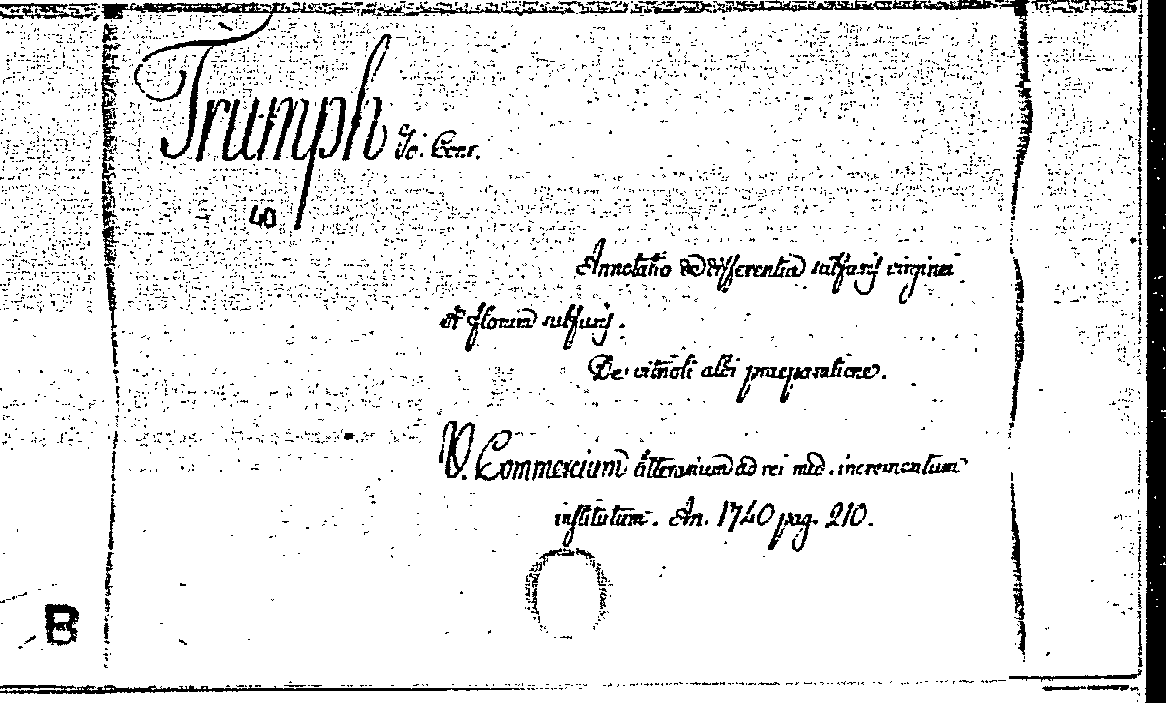 Trumph Jo. Conr.
40
Annotatio de differentia sulfuris virginei
et florum sulfuris.
De vitrioli albi praeparatione.
V. Commercium litterarium ad rei med. incrementum
institutum. An. 1740 pag. 210.
B